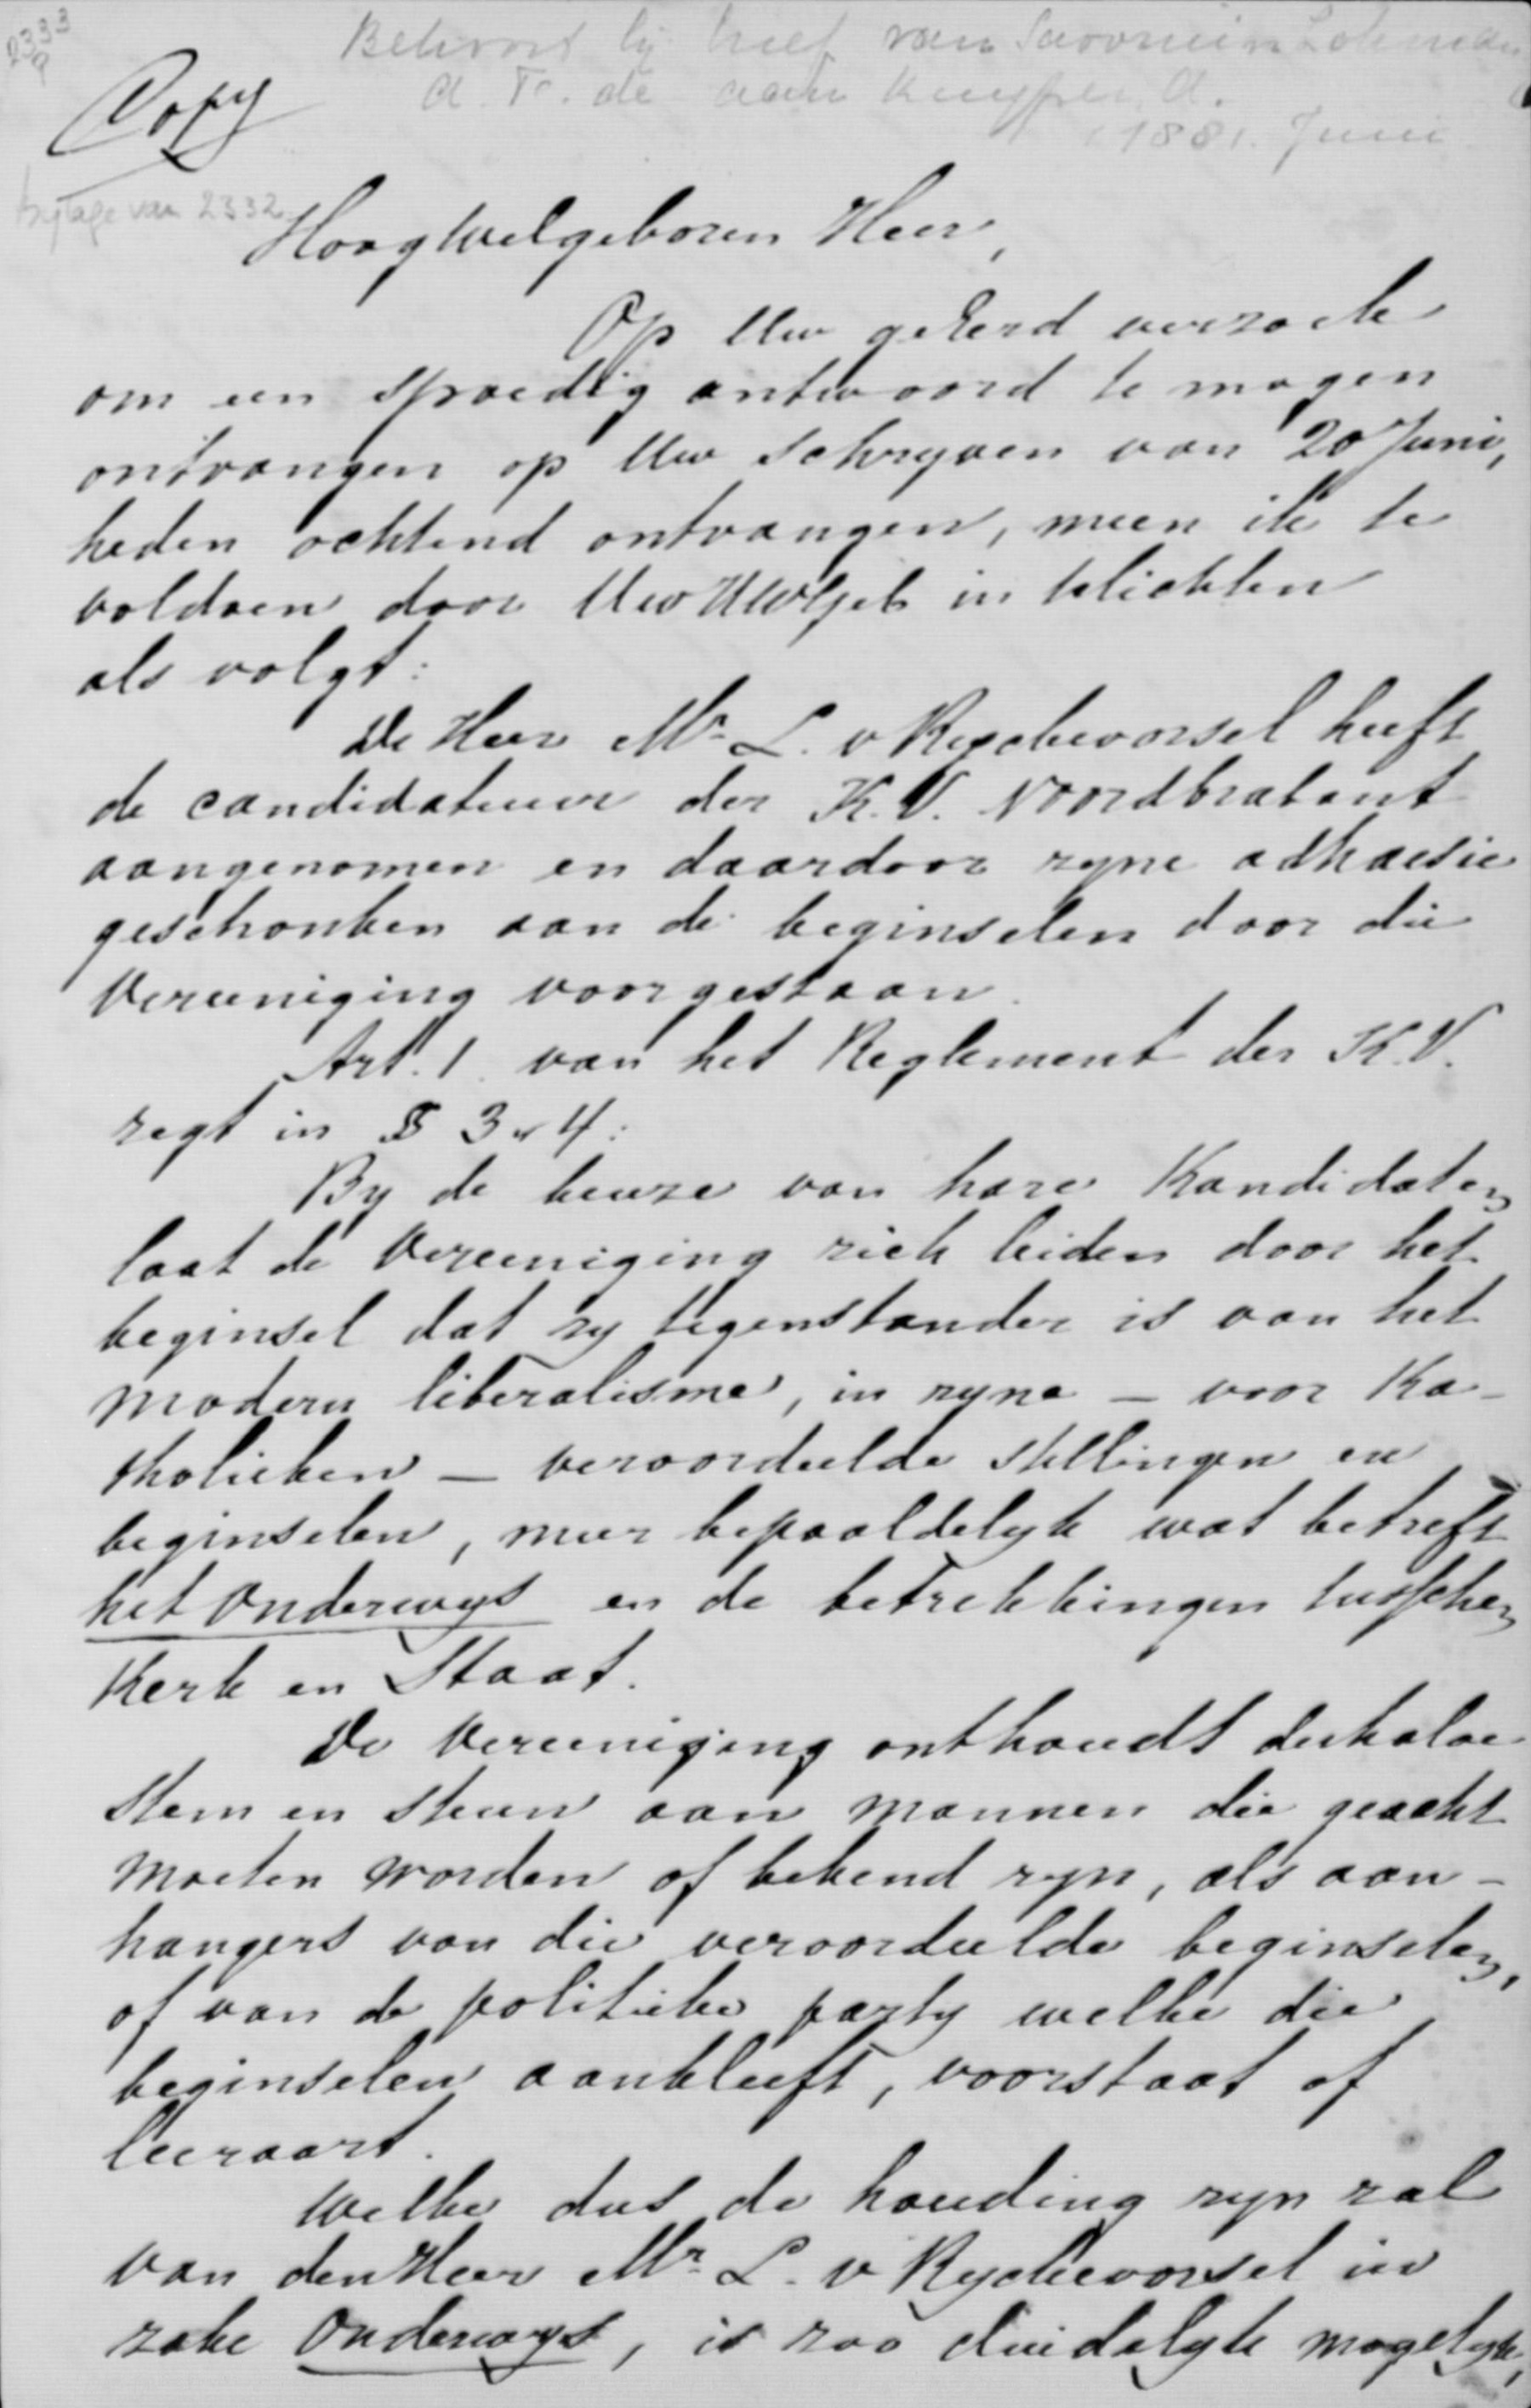 2333
a
Behoort bij brief van Savornin Lohman
A. F. de aan Kuyper, A.
1881. Juni
Copy
bijlage van 2332
Hoogwelgeboren Heer,
Op Uw geëerd verzoek
om een spoedig antwoord te mogen
ontvangen op Uw schryven van 20 Juni,
heden ochtend ontvangen, meen ik te
voldoen door Uw HWelgeb in te lichten
als volgt:
De Heer Mr. L. v Ryckevorsel heeft
de candidatuur der K.V. Noordbrabant
aangenomen en daardoor zyne adhaesie
geschonken aan de beginselen door die
Vereeniging voorgestaan.
Art. 1. van het Reglement der K.V.
zegt in § 3 & 4:
By de keuze van hare Kandidaten
laat de Vereeniging zich leiden door het
beginsel dat zy tegenstander is van het
modern liberalisme, in zyne – voor Ka-
tholieken – veroordeelde stellingen en
beginselen, meer bepaaldelyk wat betreft
het onderwys en de betrekkingen tusschen
Kerk en Staat.
De Vereeniging onthoudt derhalve
stem en steun aan mannen die geacht
moeten worden of bekend zyn, als aan-
hangers van die veroordeelde beginselen,
of van de politieke party welke die
beginselen aankleeft, voorstaat of
leeraart.
Welke dus de houding zyn zal
van den Heer Mr. L. v Ryckevorsel in
zake Onderwys, is zoo duidelyk mogelyk,